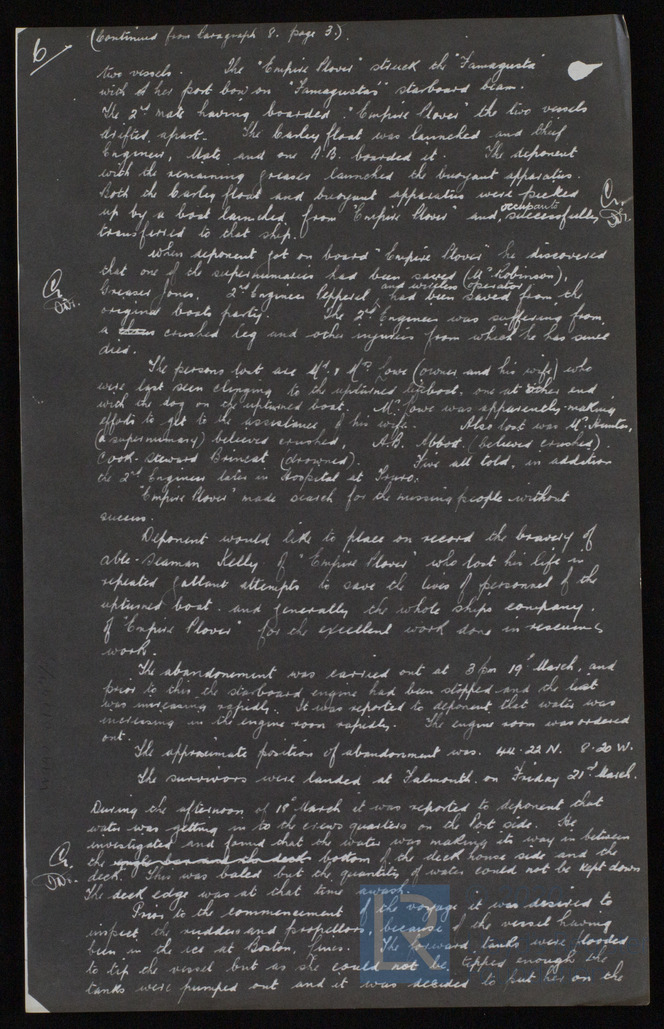 6
(Continued from Paragraph 8. page 3.).
two vessels. The "Empire Plover" struck the "Famagusta"
with her port bow on "Famagustas" starboard beam.
The 2nd mate having boarded "Empire Plover" the two vessels
drifted apart. The Carley float was launched and Chief
Engineer, Mate and one A.B. boarded it. The deponent
with the remaining greaser launched the buoyant apparatus.
Both the Carley float and buoyant apparatus were picked
occupants
up by a boat launched from "Empire Plover" and successfully
transferred to that ship.
When deponent got on board "Empire Plover" he discovered
that one of the supernumaries had been saved (Mr Robinson),
and wireless operator
Greaser Jones. 2nd Engineer Pepperel, had been saved from the
original boats party. The 2nd Engineer was suffering from
a crushed leg and other injuries from which he has since
died.
The persons lost are Mr. & Mrs. Lowe (owner and his wife) who
were last seen clinging to the upturned lifeboat, one at either end,
with the dog on the upturned boat. Mr. Lowe was apparently making
efforts to get to the assistance of his wife. Also lost was Mr. Hunter,
(a supernumary) believed crushed, A.B. Abbod. (believed crushed)
Cook-Steward Brincat (drowned). Five all told, in addition
the 2nd Engineer later in Hospital at Truro.
"Empire Plover" made search for the missing people without
success.
Deponent would like to place on record the bravery of
able-seaman Kelly of "Empire Plover" who lost his life in
repeated gallant attempts to save the lives of personnel of the
upturned boat. and generally the whole ships company.
of "Empire Plover" for the excellent work done in rescuing
work.
The abandonement was carried out at 3 pm 19th March, and
prior to this the starboard engine had been stopped and the list
was increasing rapidly. It was reported to deponent that water was
increasing in the engine room rapidly. The engine room was ordered
out.
The approximate position of abandonment was. 44.22 N. 8.20 W.
The survivors were landed at Falmouth on Friday 21st March.
During the afternoon of 18th March it was reported to deponent that
water was getting in to the crews quarters on the Port side. He
investigated and found that the water was making its way in between
the bottom of the deck house side and the
deck. This was baled but the quantity of water could not be kept down
The deck edge was at that time awash.
Prior to the commencement of the voyage it was desired to
inspect the rudders and propellors, because of the vessel having
been in the ice at Boston, Lincs. The forward tanks were flooded
to tip the vessel but as she could not be tipped enough the
tanks were pumped out and it was decided to put her on the
LR